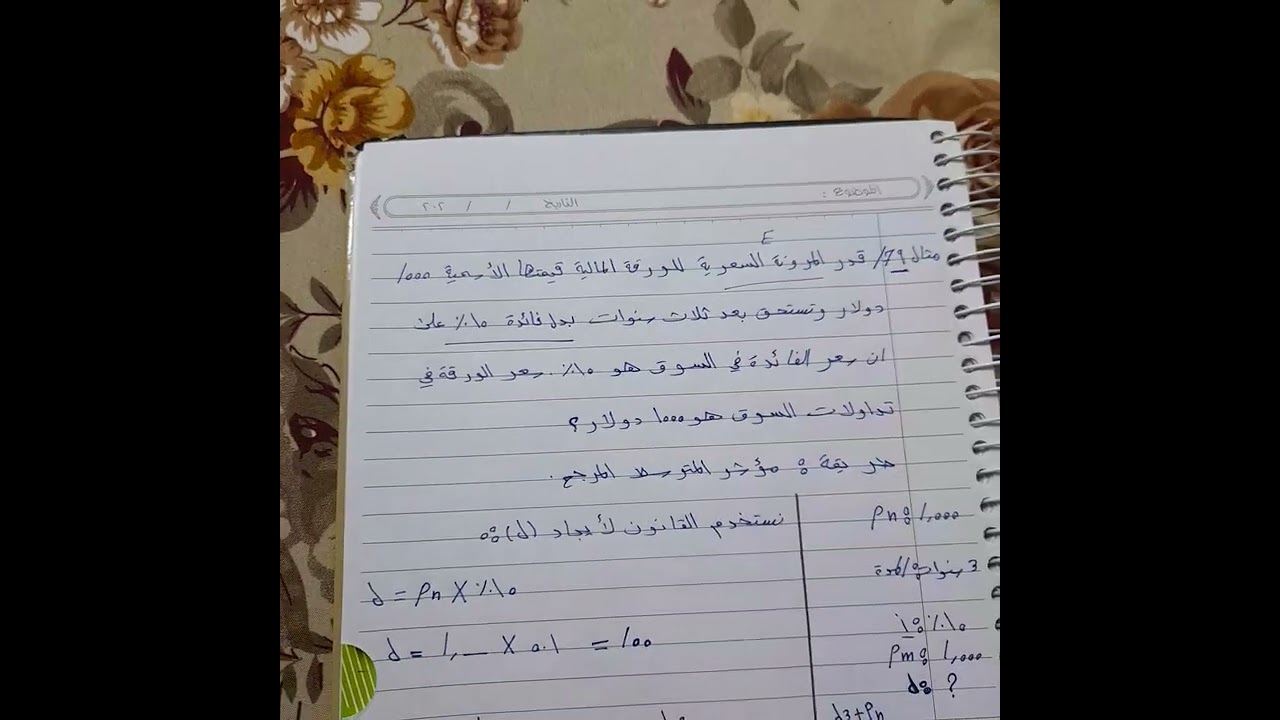 الموضوع :
التاريخ / / ٢٠٢
E
مثال 79/ قدر المرونة السعرية للورقة المالية قيمتها الأسمية ١٠٠٠
دولار وتستحق بعد ثلاث سنوات بدل فائدة ١٠٪ على
ان سعر الفائدة في السوق هو ١٠٪. سعر الورقة في
تداولات السوق هو ١٠٠٠ دولار؟
طريقة : مؤشر المتوسط المرجح.
نستخدم القانون لأيجاد (d) :
d = Pn X ٪١٠
d = 1, — X ٠.١ = ١٠٠
Pn: 1,000
3 سنوات : المدة
i: ٪١٠
Pm: 1,000
d: ?
d3+Pn